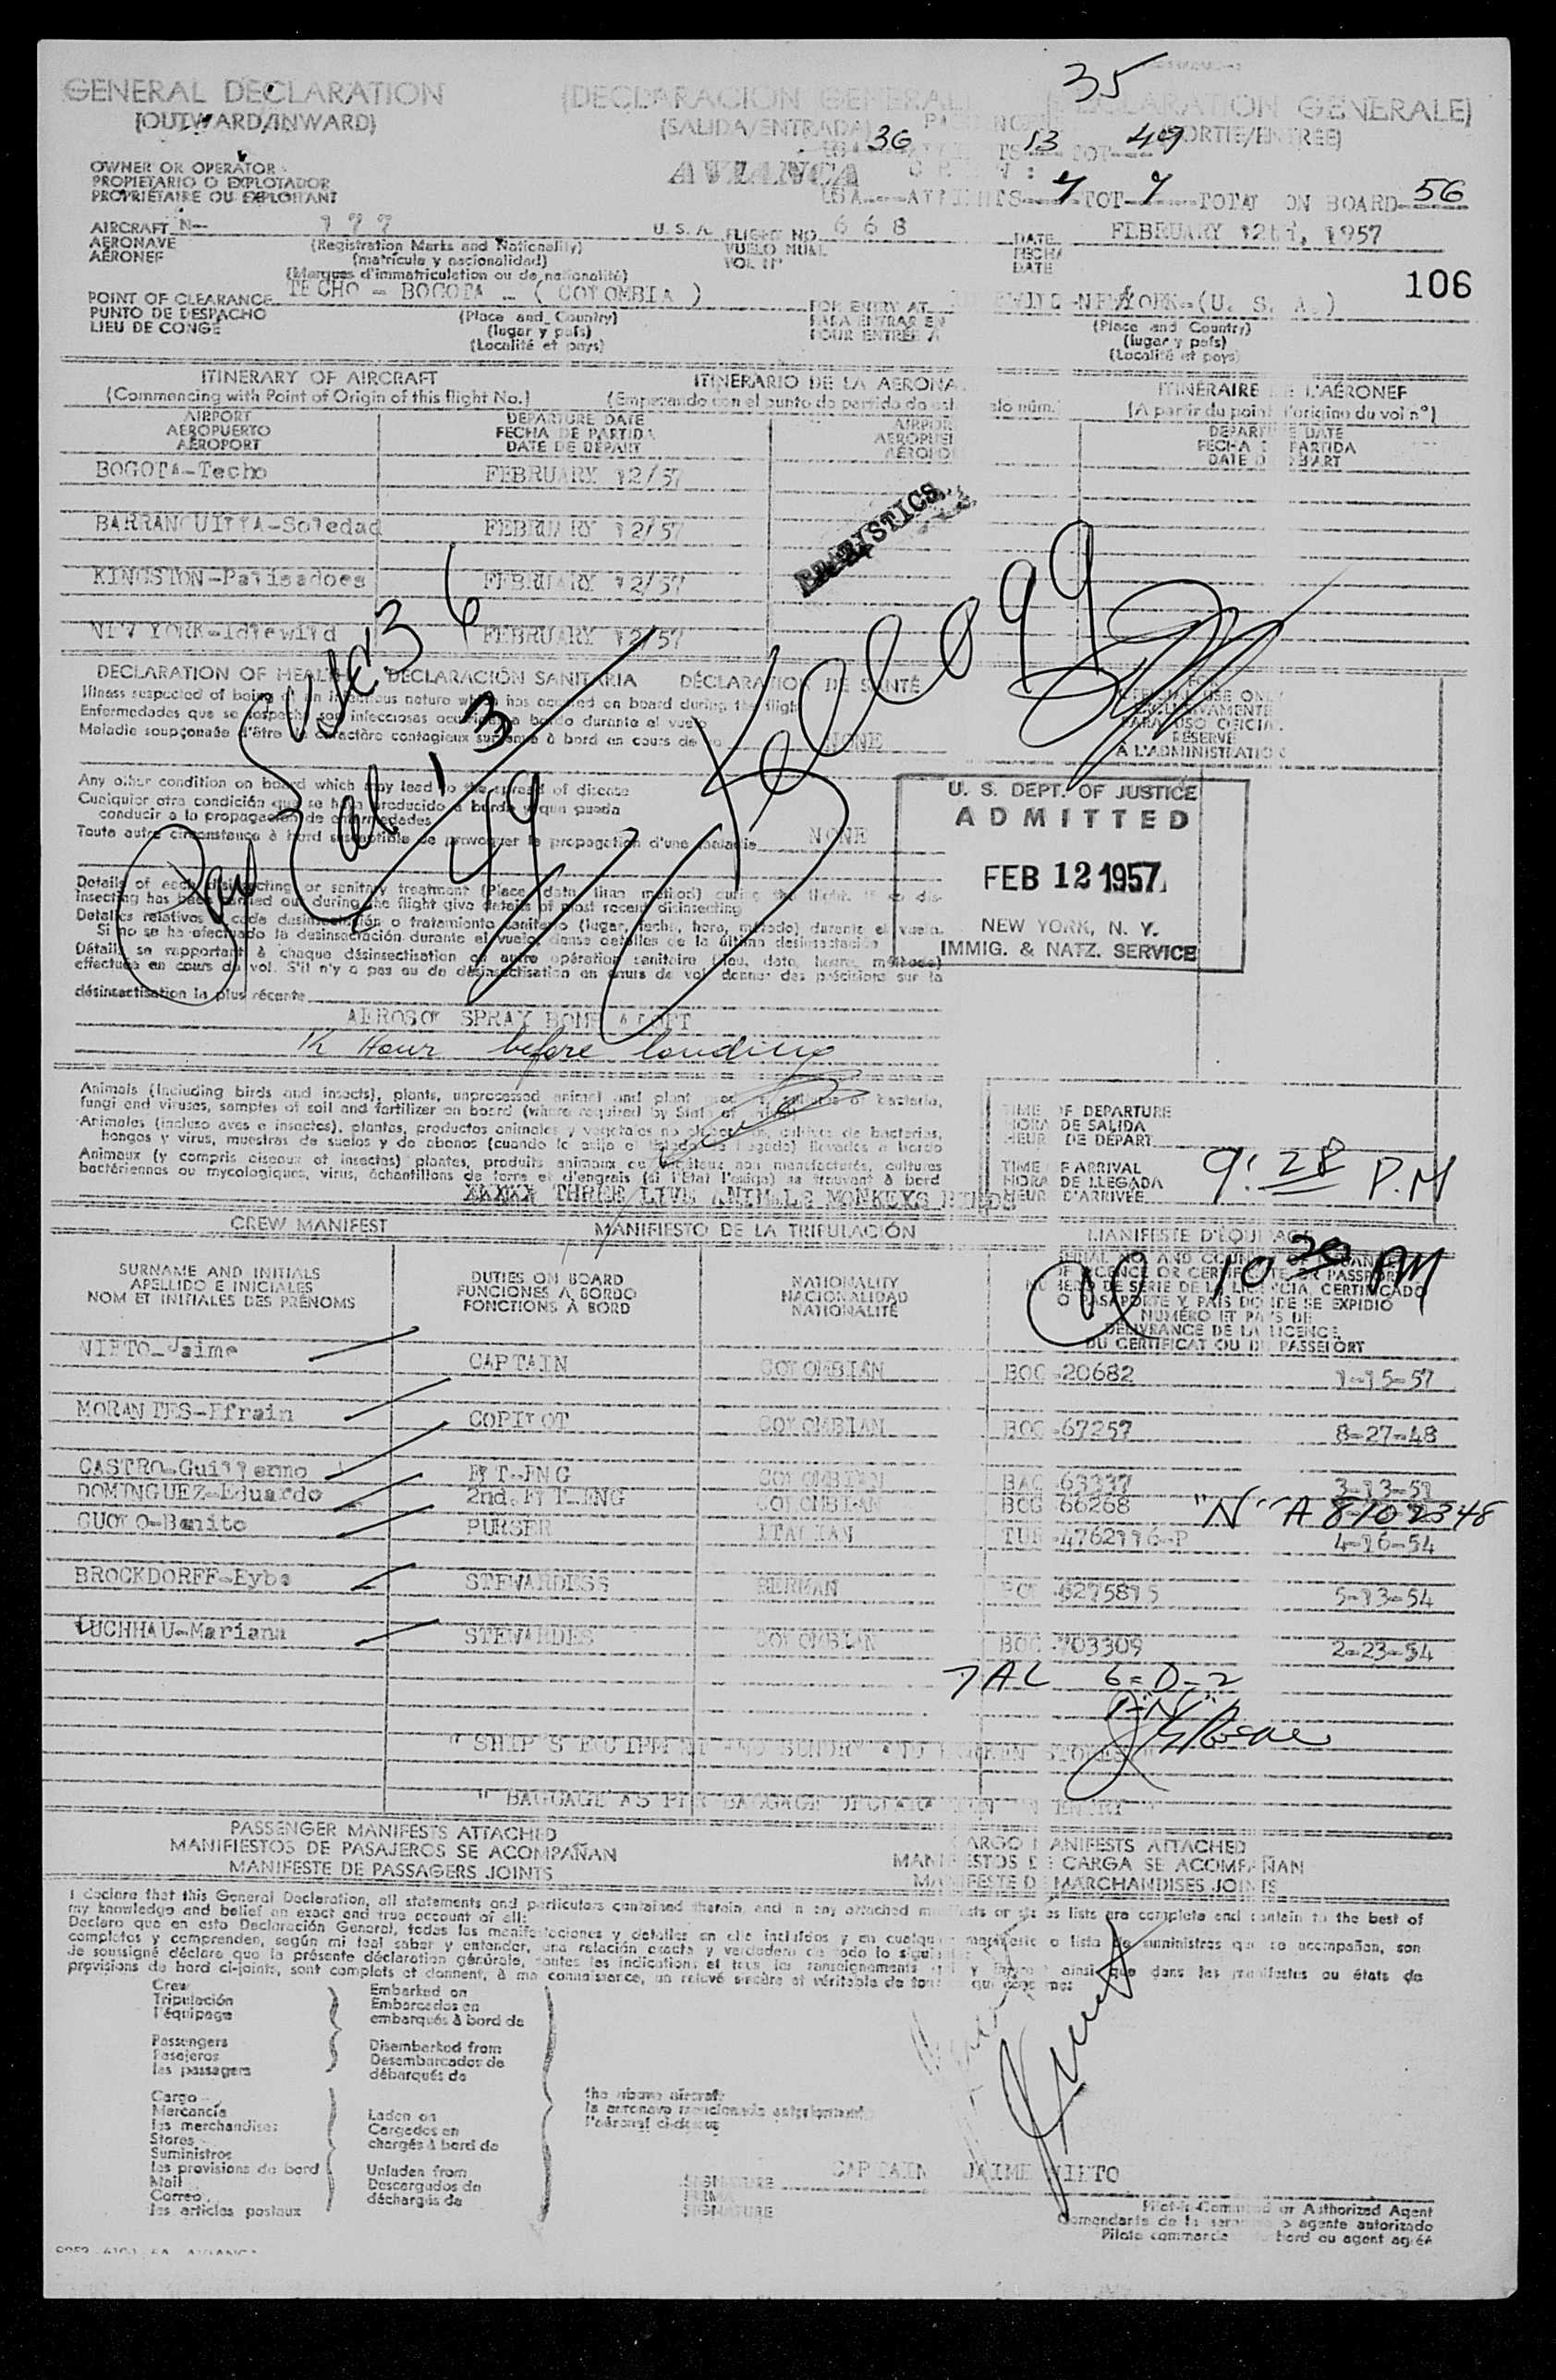 35
GENERAL DECLARATION
(OUTWARD/INWARD)
(DECLARACION GENERAL)
(SALIDA/ENTRADA)
DECLARATION GENERALE)
SORTIE/ENTRÉE)
36 13 TOT 49
OWNER OR OPERATOR
PROPIETARIO O EXPLOTADOR
PROPRIÉTAIRE OU EXPLOITANT
AVIANCA
7 TOT 7 TOTAL ON BOARD 56
AIRCRAFT N-
AERONAVE
AÉRONEF
(Registration Marks and Nationality)
(matrícula y nacionalidad)
(Marques d'immatriculation ou de nationalité)
U.S.A. FLIGHT NO. 668
VUELO NUM.
VOL Nº
DATE FEBRUARY 12th, 1957
FECHA
DATE
106
POINT OF CLEARANCE TECHO - BOGOTA - ( COLOMBIA )
PUNTO DE DESPACHO
LIEU DE CONGÉ
(Place and Country)
(lugar y país)
(Localité et pays)
FOR ENTRY AT NEW YORK-(U. S. A.)
PARA ENTRAR EN
POUR ENTRÉE A
(Place and Country)
(lugar y país)
(Localité et pays)
ITINERARY OF AIRCRAFT
(Commencing with Point of Origin of this flight No.)
ITINERARIO DE LA AERONA
(Empezando con el punto de partida de est
elo núm.
ITINÉRAIRE DE L'AÉRONEF
(A partir du point d'origine du vol nº)
AIRPORT
AEROPUERTO
AÉROPORT
DEPARTURE DATE
FECHA DE PARTIDA
DATE DE DÉPART
DEPARTURE DATE
FECHA DE PARTIDA
DATE DE DÉPART
BOGOTA-Techo FEBRUARY 12/57
BARRANQUILLA-Soledad FEBRUARY 12/57
KINGSTON-Palisadoes FEBRUARY 12/57
NEW YORK-Idlewild FEBRUARY 12/57
STATISTICS
DECLARATION OF HEALTH DECLARACIÓN SANITARIA DÉCLARATION DE SANTÉ
Illness suspected of being of an infectious nature which has occurred on board during the flight
Enfermedades que se sospecha son infecciosas ocurridas a bordo durante el vuelo
Maladie soupçonnée d'être de caractère contagieux survenue à bord en cours de vol NONE
FOR
OFFICIAL USE ONLY
EXCLUSIVAMENTE
PARA USO OFICIAL
RÉSERVÉ
À L'ADMINISTRATION
Any other condition on board which may lead to the spread of disease
Cualquier otra condición que se haya producido a bordo y que pueda
conducir a la propagación de enfermedades
Toute autre circonstance à bord susceptible de provoquer la propagation d'une maladie NONE
36
13
49
U. S. DEPT. OF JUSTICE
ADMITTED
FEB 12 1957
NEW YORK, N. Y.
IMMIG. & NATZ. SERVICE
Details of each disinsecting or sanitary treatment (Place, date, time, method) during the flight. If no dis-
insecting has been carried out during the flight give details of most recent disinsecting
Detalles relativos a cada desinsectación o tratamiento sanitario (lugar, fecha, hora, método) durante el vuelo.
Si no se ha efectuado la desinsectación durante el vuelo, dense detalles de la última desinsectación
Détails se rapportant à chaque désinsectisation ou autre opération sanitaire (lieu, date, heure, méthode)
effectuée en cours de vol. S'il n'y a pas eu de désinsectisation en cours de vol donner des précisions sur la
désinsectisation la plus récente
AEROSOL SPRAY BOMB ALOFT
½ Hour before landing
Animals (including birds and insects), plants, unprocessed animal and plant products, cultures of bacteria,
fungi and viruses, samples of soil and fertilizer on board (where required by State of arrival)
Animales (incluso aves e insectos), plantas, productos animales y vegetales no elaborados, cultivos de bacterias,
hongos y virus, muestras de suelos y de abonos (cuando lo exija el Estado de llegada) llevados a bordo
Animaux (y compris oiseaux et insectes) plantes, produits animaux ou végétaux non manufacturés, cultures
bactériennes ou mycologiques, virus, échantillons de terre et d'engrais (si l'État l'exige) se trouvant à bord
XXXXX THREE LIVE ANIMALS MONKEYS BIRDS
TIME OF DEPARTURE
HORA DE SALIDA
HEURE DE DÉPART
TIME OF ARRIVAL
HORA DE LLEGADA
HEURE D'ARRIVÉE
9:28 P.M
CREW MANIFEST MANIFIESTO DE LA TRIPULACIÓN MANIFESTE D'EQUIPAGE
10 30 PM
SURNAME AND INITIALS
APELLIDO E INICIALES
NOM ET INITIALES DES PRÉNOMS
DUTIES ON BOARD
FUNCIONES A BORDO
FONCTIONS À BORD
NATIONALITY
NACIONALIDAD
NATIONALITÉ
SERIAL NO. AND COUNTRY OF ISSUANCE
OF LICENCE OR CERTIFICATE OR PASSPORT
NÚMERO DE SERIE DE LA LICENCIA, CERTIFICADO
O PASAPORTE Y PAÍS DONDE SE EXPIDIÓ
NUMÉRO ET PAYS DE
DÉLIVRANCE DE LA LICENCE
DU CERTIFICAT OU DU PASSEPORT
NIETO-Jaime CAPTAIN COLOMBIAN BOG-20682 1-15-57
MORANTES-Efrain COPILOT COLOMBIAN BOG-67257 8-27-48
CASTRO-Guillermo FLT-ENG COLOMBIAN 3-13-51
DOMINGUEZ-Eduardo 2nd. FLT-ENG COLOMBIAN BOG 66268 "N" A 8102348
CUOLO-Benito PURSER ITALIAN TUR-4762116-P 4-16-54
BROCKDORFF-Eybe STEWARDESS GERMAN 5-13-54
LUCHHAU-Mariana STEWARDES COLOMBIAN BOG-703309 2-23-54
7 AL 6=D-2
1-"N"
" SHIP'S EQUIPMENT AND SUNDRY AND BROKEN STORES "
" BAGGAGE AS PER BAGGAGE DECLARATION ON ENTRY "
PASSENGER MANIFESTS ATTACHED
MANIFIESTOS DE PASAJEROS SE ACOMPAÑAN
MANIFESTE DE PASSAGERS JOINTS
CARGO MANIFESTS ATTACHED
MANIFIESTOS DE CARGA SE ACOMPAÑAN
MANIFESTE DE MARCHANDISES JOINTS
I declare that this General Declaration, all statements and particulars contained therein, and in any attached manifests or stores lists are complete and contain to the best of
my knowledge and belief an exact and true account of all:
Declaro que en esta Declaración General, todas las manifestaciones y detalles en ella incluídos y en cualquier manifiesto o lista de suministros que se acompañan, son
completos y comprenden, según mi leal saber y entender, una relación exacta y verdadera de todo lo siguiente:
Je soussigné déclare que la présente déclaration générale, toutes les indications et tous les renseignements qui y figurent ainsi que dans les manifestes ou états de
provisions de bord ci-joints, sont complets et donnent, à ma connaissance, un relevé sincère et véritable de tout ce qui concerne:
Crew
Tripulación
l'équipage
Passengers
Pasajeros
les passagers
Embarked on
Embarcados en
embarqués à bord de
Disembarked from
Desembarcados de
débarqués de
Cargo
Mercancía
les merchandises
Stores
Suministros
les provisions de bord
Mail
Correo
les articles postaux
Laden on
Cargados en
chargés à bord de
Unladen from
Descargados de
déchargés de
the above aircraft
la aeronave mencionada anteriormente
l'aéronef ci-dessus
SIGNATURE
FIRMA
SIGNATURE
CAPTAIN JAIME NIETO
Pilot-in-Command or Authorized Agent
Comandante de la aeronave o agente autorizado
Pilote commandant de bord ou agent agréé